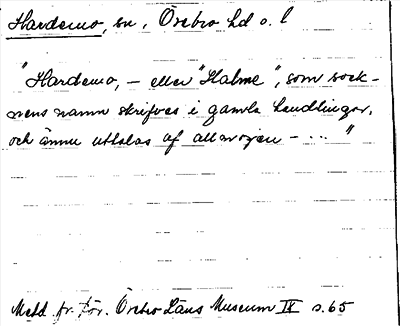 Hardemo, sn, Örebro hd o. l
"Hardemo, – eller "Halme", som sock-
nens namn skrifves i gamla handlingar,
och ännu uttalas af allmogen – ... "
Medd. fr. För. Örebro Läns Museum IX s. 65